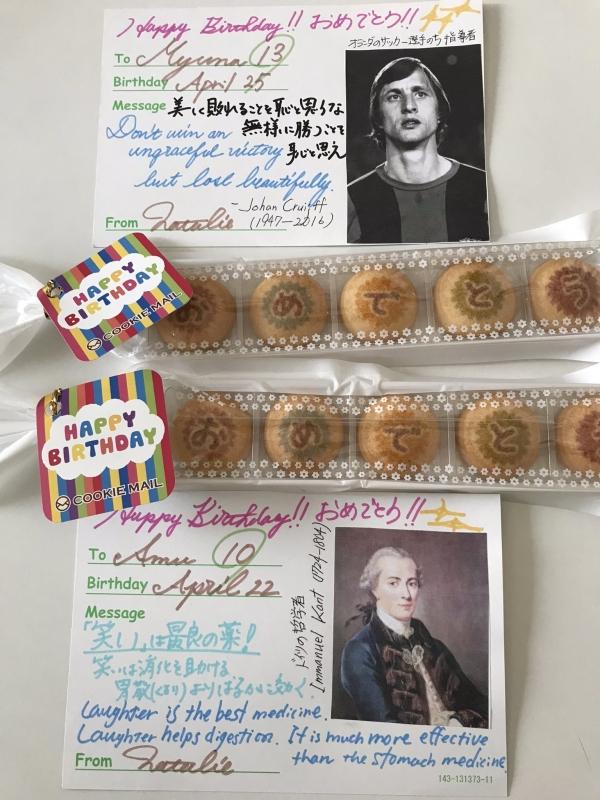 Happy Birthday!! おめでとう!!
To Myuna 13
オランダのサッカー選手のち指導者
Birthday April 25
Message 美しく敗れることを恥と思うな
無様に勝つことを
恥と思え
Don't win an
ungraceful victory
but lost beautifully.
- Johan Cruijff
(1947-2016)
From Natalie
HAPPY
BIRTHDAY
COOKIE MAIL
お め で と う
HAPPY
BIRTHDAY
COOKIE MAIL
お め で と う
Happy Birthday!! おめでとう!!
To Amu 10
Birthday April 22
Message
「笑い」は最良の薬!
笑いは消化を助ける
胃散(くすり)よりはるかに効く。
ドイツの哲学者
Immanuel Kant (1724-1804)
Laughter is the best medicine.
Laughter helps digestion. It is much more effective
than the stomach medicine.
From Natalie
143-131373-11